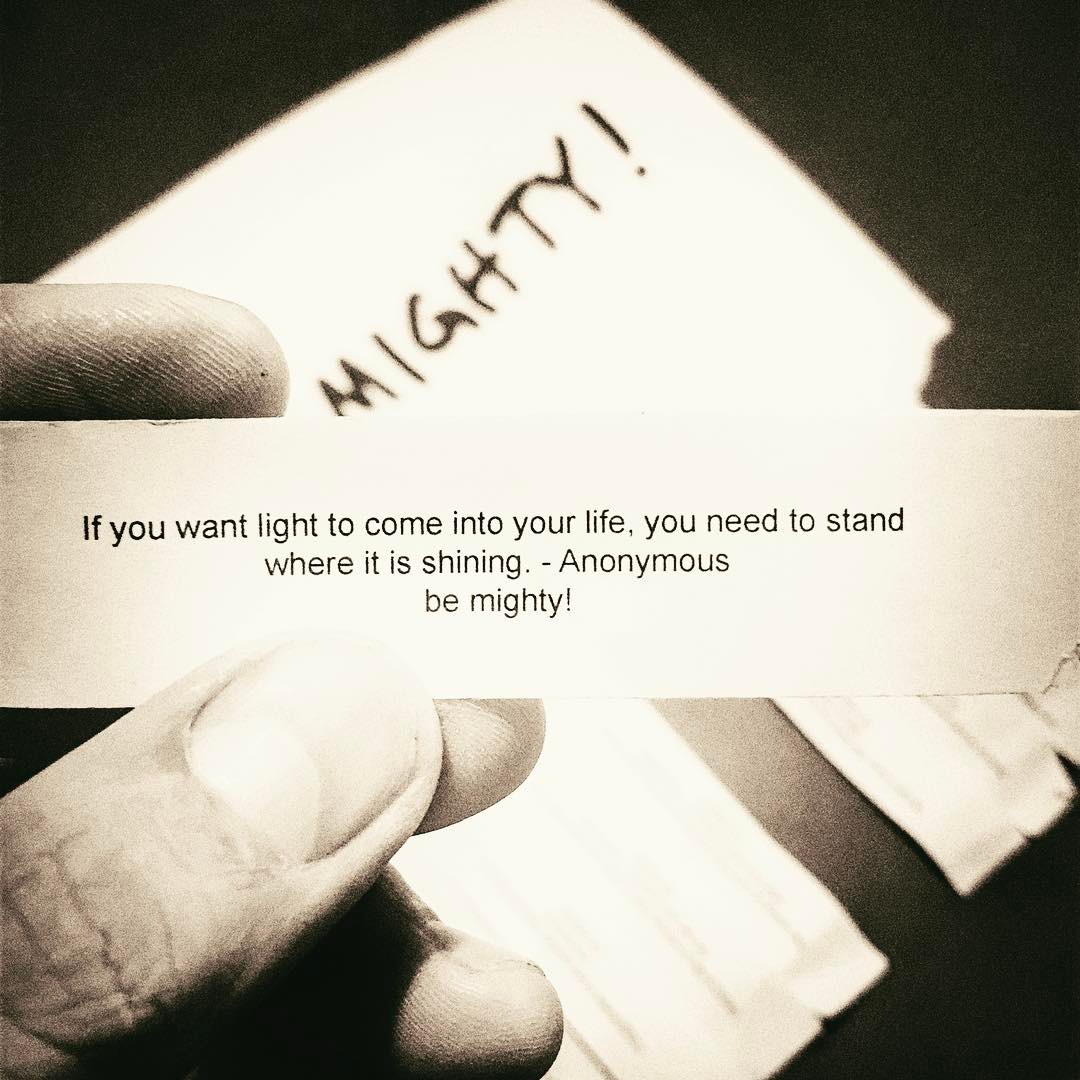 MIGHTY!
If you want light to come into your life, you need to stand
where it is shining. - Anonymous
be mighty!